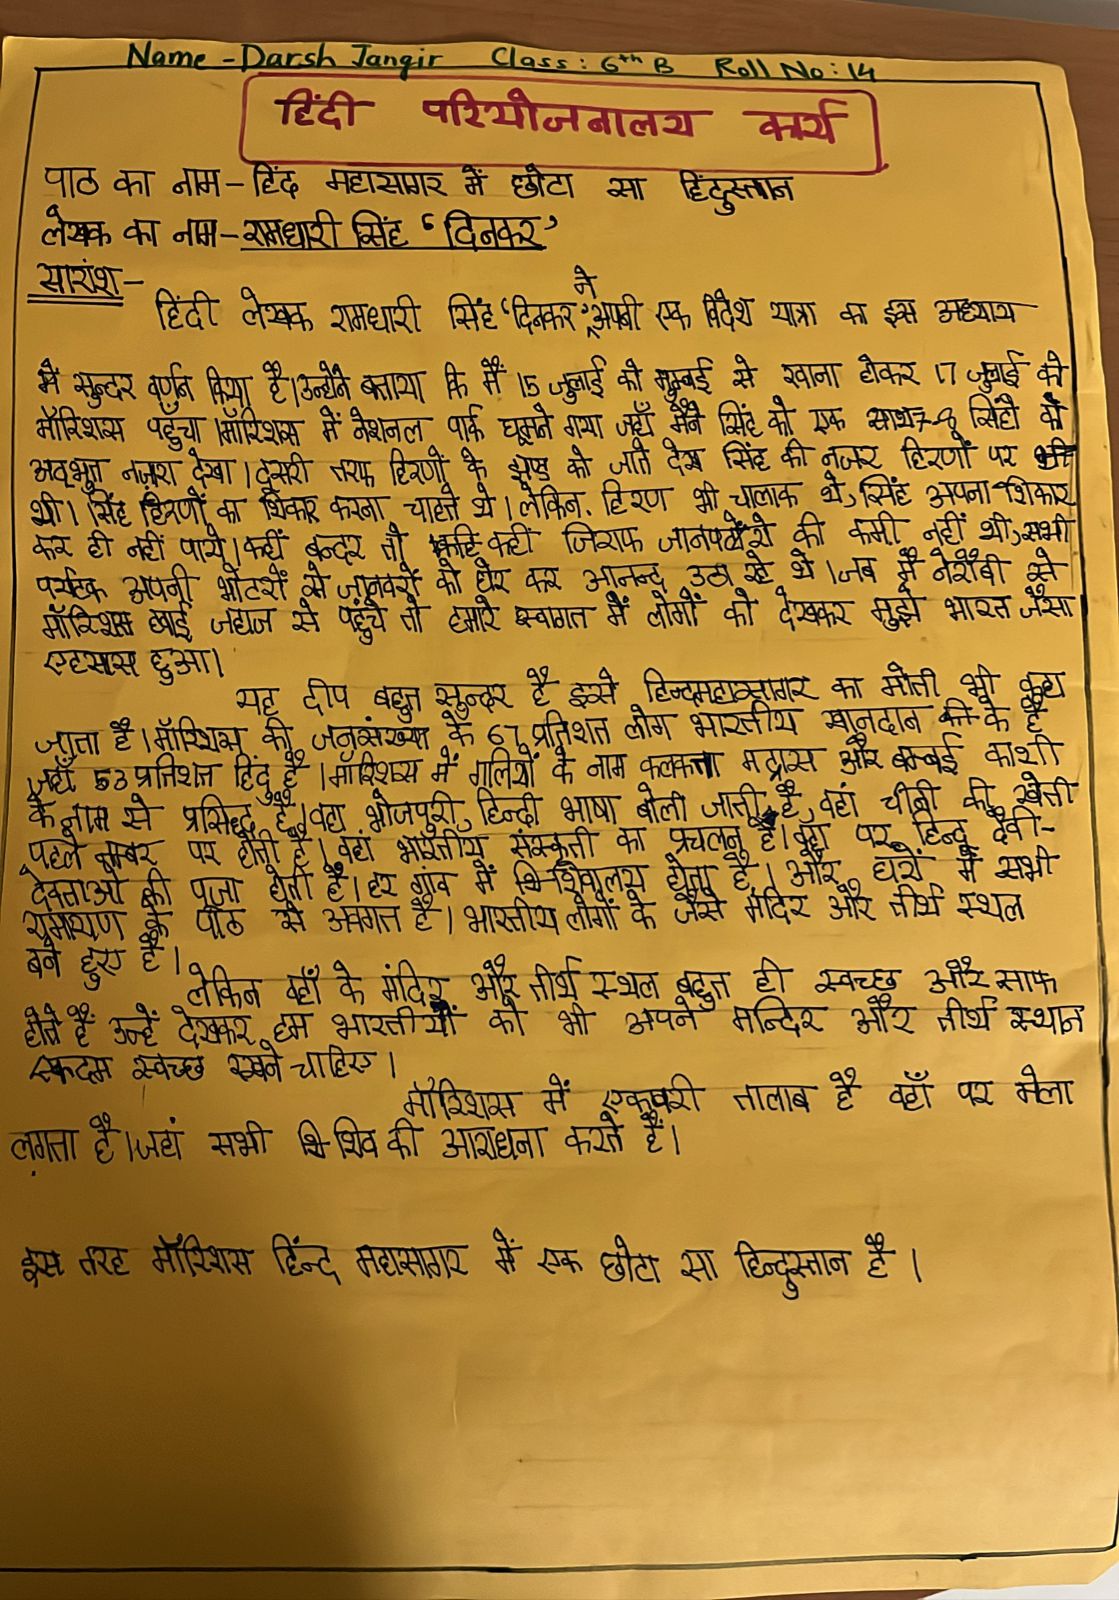 Name - Darsh Jangir Class: 6th B Roll No: 14
हिंदी परियोजनालय कार्य
पाठ का नाम - हिंद महासागर में छोटा सा हिंदुस्तान
लेखक का नाम - रामधारी सिंह 'दिनकर'
सारांश -
हिंदी लेखक रामधारी सिंह 'दिनकर' ने अपनी एक विदेश यात्रा का इस अध्याय
में सुन्दर वर्णन किया है। उन्होंने बताया कि मैं 15 जुलाई को मुम्बई से रवाना होकर 17 जुलाई को
मॉरिशस पहुँचा। मॉरिशस में नेशनल पार्क घूमने गया जहाँ मैंने सिंह को एक साथ 7-8 सिंहो का
अदभुत नज़रा देखा। दूसरी तरफ हिरणों के झुण्ड को जाते देख सिंह की नजर हिरणों पर भी
थी। सिंह हिरणों का शिकार करना चाहते थे। लेकिन हिरण भी चालाक थे, सिंह अपना शिकार
कर ही नहीं पाये। कहीं बन्दर तो कहीं जिराफ जानवरों की कमी नहीं थी, सभी
पर्यटक अपनी मोटरों से जानवरों को घेर कर आनन्द उठा रहे थे। जब मैं नैरोबी से
मॉरिशस हवाई जहाज से पहुंचे तो हमारे स्वागत में लोगों को देखकर मुझे भारत जैसा
एहसास हुआ।
यह दीप बहुत सुन्दर है इसे हिन्दमहासागर का मोती भी कहा
जाता है। मॉरिशस की जनसंख्या के 67 प्रतिशत लोग भारतीय खानदान के है
जहाँ 53 प्रतिशत हिंदु है। मॉरिशस में गलियों के नाम कलकत्ता मद्रास और बम्बई काशी
के नाम से प्रसिद्ध है। वहा भोजपुरी, हिन्दी भाषा बोली जाती है, वहां चीनी की खेती
पहले नम्बर पर होती है। वहां भारतीय संस्कृती का प्रचलन है। वहाँ पर हिन्दू देवी-
देवताओं की पूजा होती है। हर गांव में शिवालय होता है। और घरों में सभी
रामायण के पाठ से अवगत है। भारतीय लोगों के जैसे मंदिर और तीर्थ स्थल
बने हुए है।
लेकिन वहाँ के मंदिर और तीर्थ स्थल बहुत ही स्वच्छ और साफ
होते हैं उन्हें देखकर हम भारतीयों को भी अपने मन्दिर और तीर्थ स्थान
एकदम स्वच्छ रखने चाहिए।
मॉरिशस में तालाब है वहाँ पर मेला
लगता है। जहां सभी शिव की आराधना करते हैं।
इस तरह मॉरिशस हिन्द महासागर में एक छोटा सा हिन्दुस्तान है।